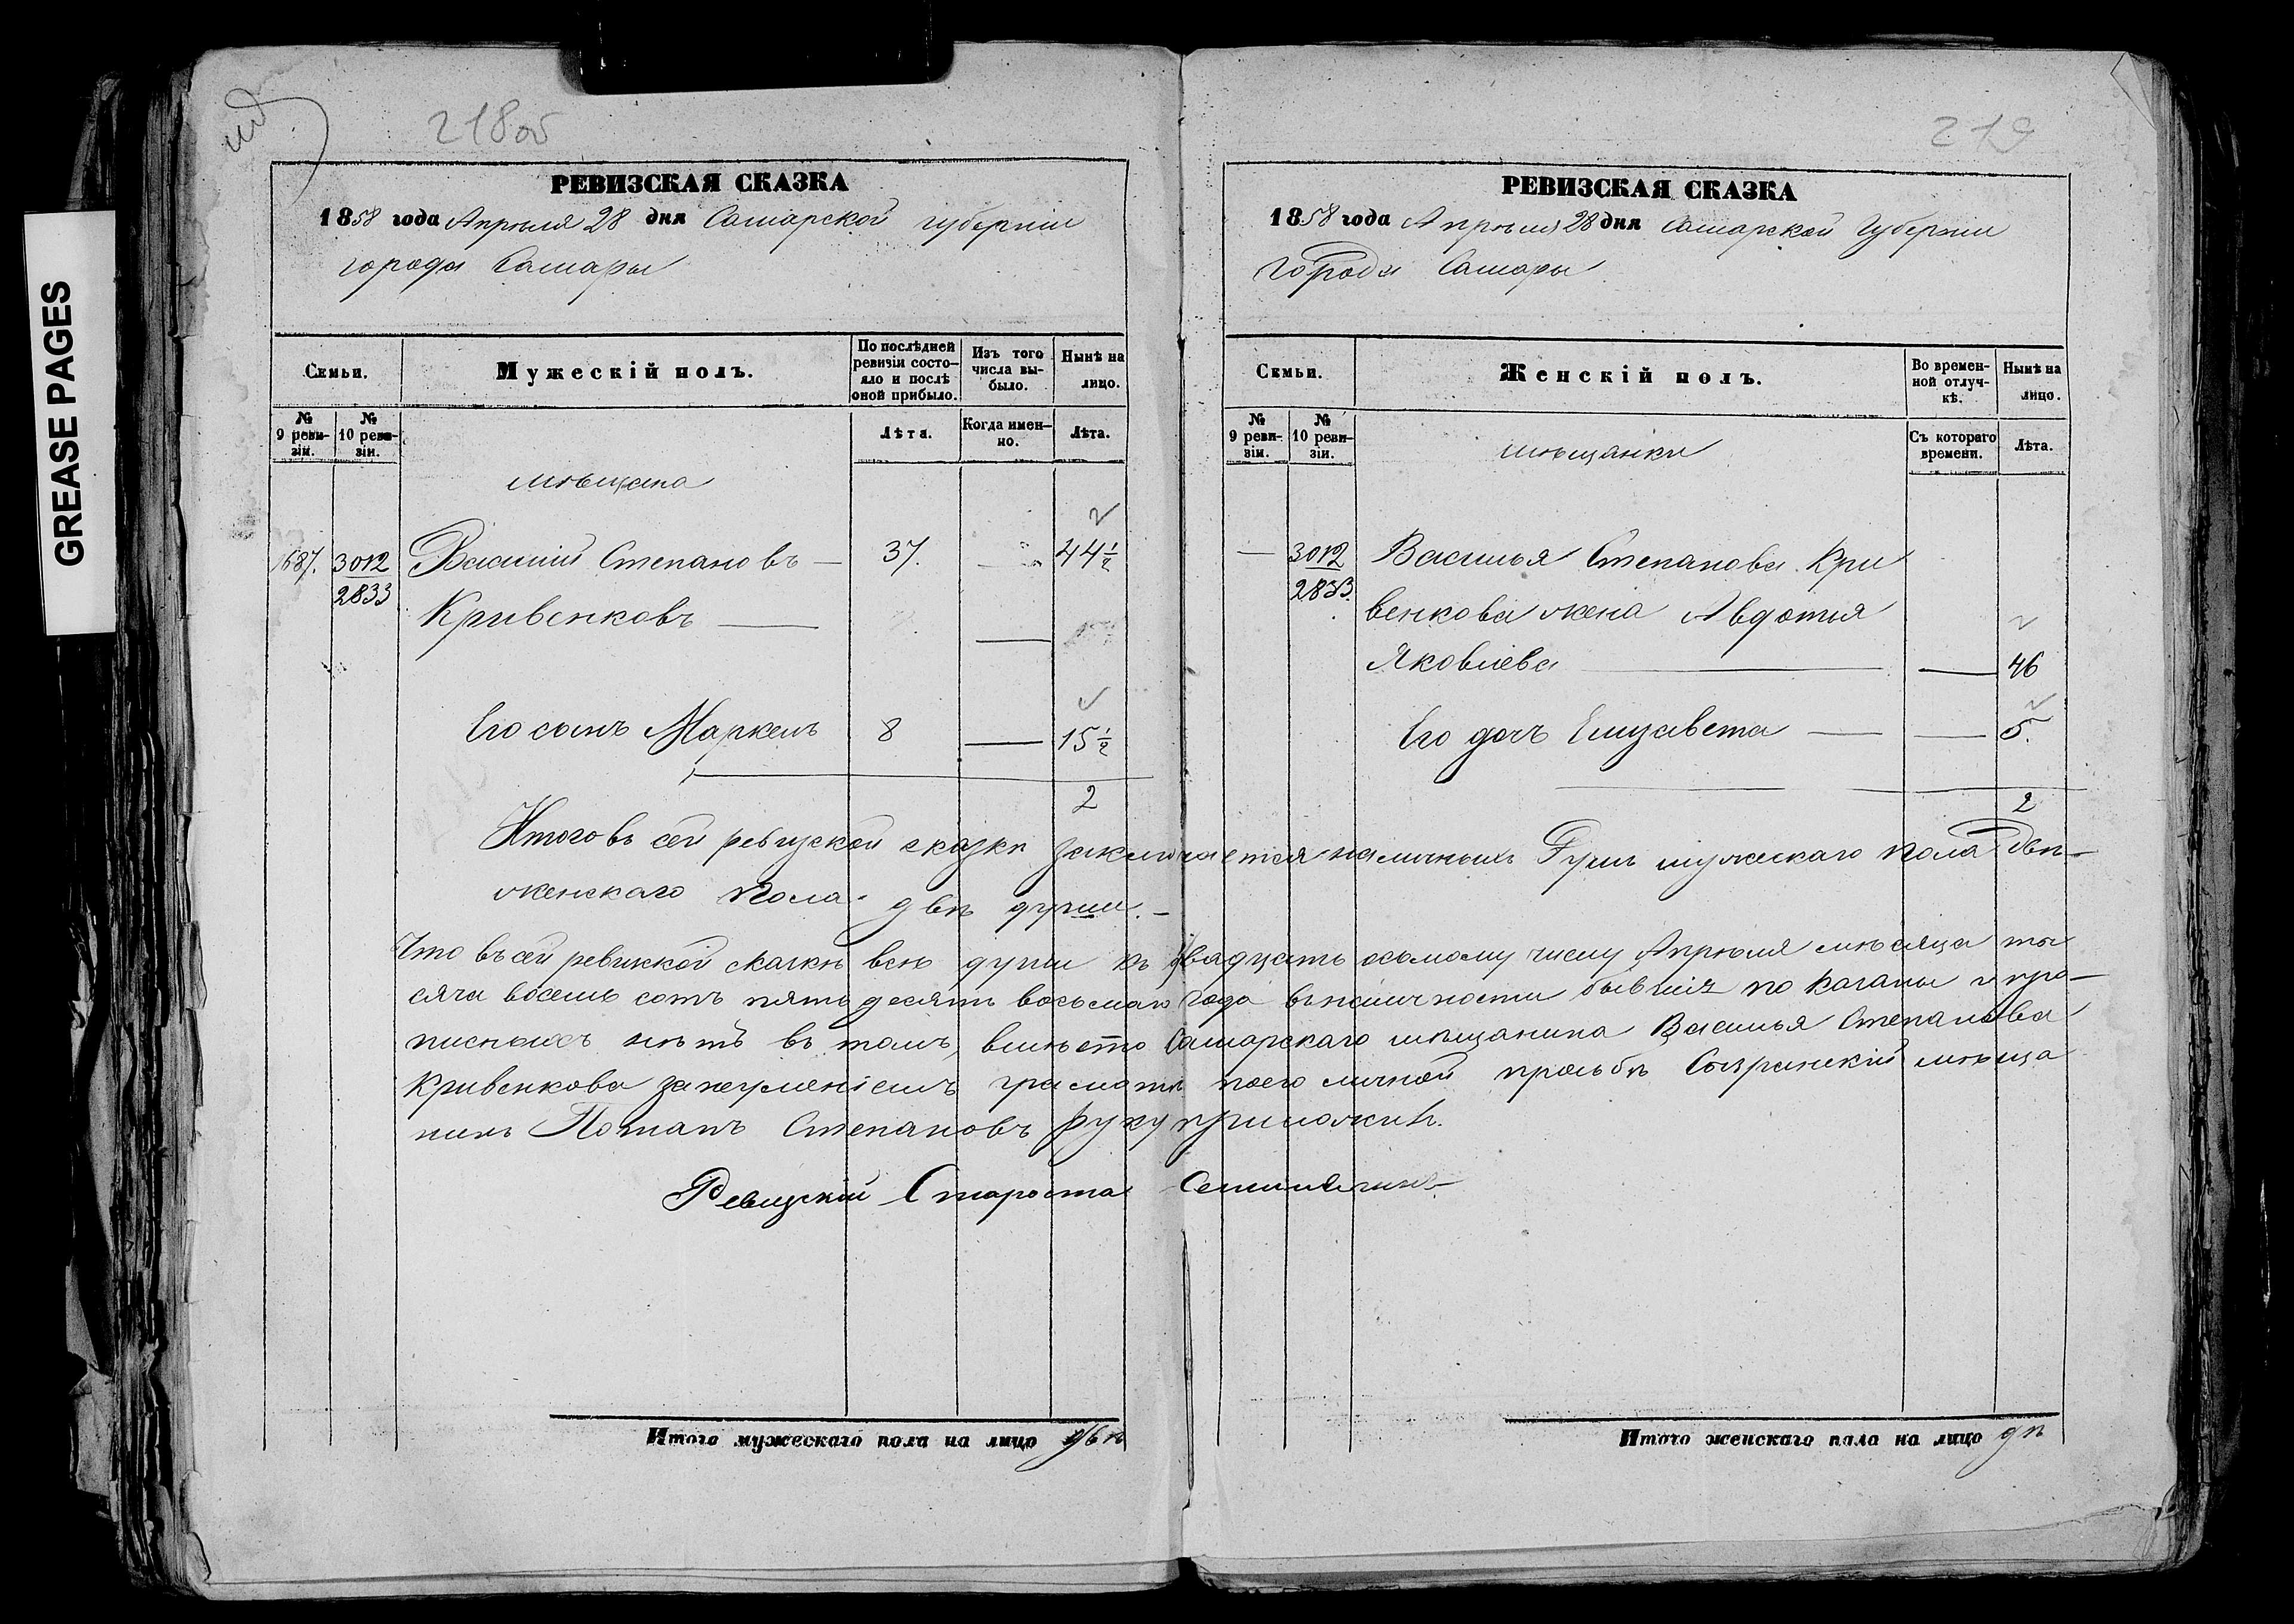 GREASE PAGES
218 об
РЕВИЗСКАЯ СКАЗКА
1858 года Апрѣля 28 дня Самарской губерніи
города Самары
Семьи.
Мужескій полъ.
По послѣдней ревизіи состояло и послѣ оной прибыло.
Изъ того числа выбыло.
Нынѣ на лицо.
№ 9 ревизіи.
№ 10 ревизіи.
Лѣта.
Когда именно.
Лѣта.
мѣщана
1687. 3012 Василій Степановъ — 37. — 44 1/2
2833 Кривенковъ —
Его сынъ Маркелъ 8 — 15 1/2
2
219
РЕВИЗСКАЯ СКАЗКА
1858 года Апрѣля 28 дня Самарской Губерніи
Города Самары
Семьи.
Женскій полъ.
Во временной отлучкѣ.
Нынѣ на лицо.
№ 9 ревизіи.
№ 10 ревизіи.
Съ котораго времени.
Лѣта.
мѣщанки
— 3012 Василья Степанова Кри
2833. венкова жена Авдотья
Яковлева — — 46
Его дочь Елизавета — — 5.
2
Итого въ сей ревизской сказки заключается наличныхъ Душъ мужескаго пола двѣ—
женскаго пола двѣ души.—
Что въ сей ревизкой скаскѣ всѣ души къ двадцать осьмому числу Апрѣля мѣсяца ты
сяча восемь сотъ пять десятъ восьмаго года въ наличности бывшія показаны и про—
писныхъ нѣтъ въ томъ, вмѣсто Самарскаго мѣщанина Василья Степанова
Кривенкова за неуменіемъ грамоты по его личной прозьбѣ Сызранскій мѣща
нинъ Потапъ Степановъ руку приложилъ.
Ревизскій Староста
Итого мужескаго пола на лицо двѣ
Итого женскаго пола на лицо